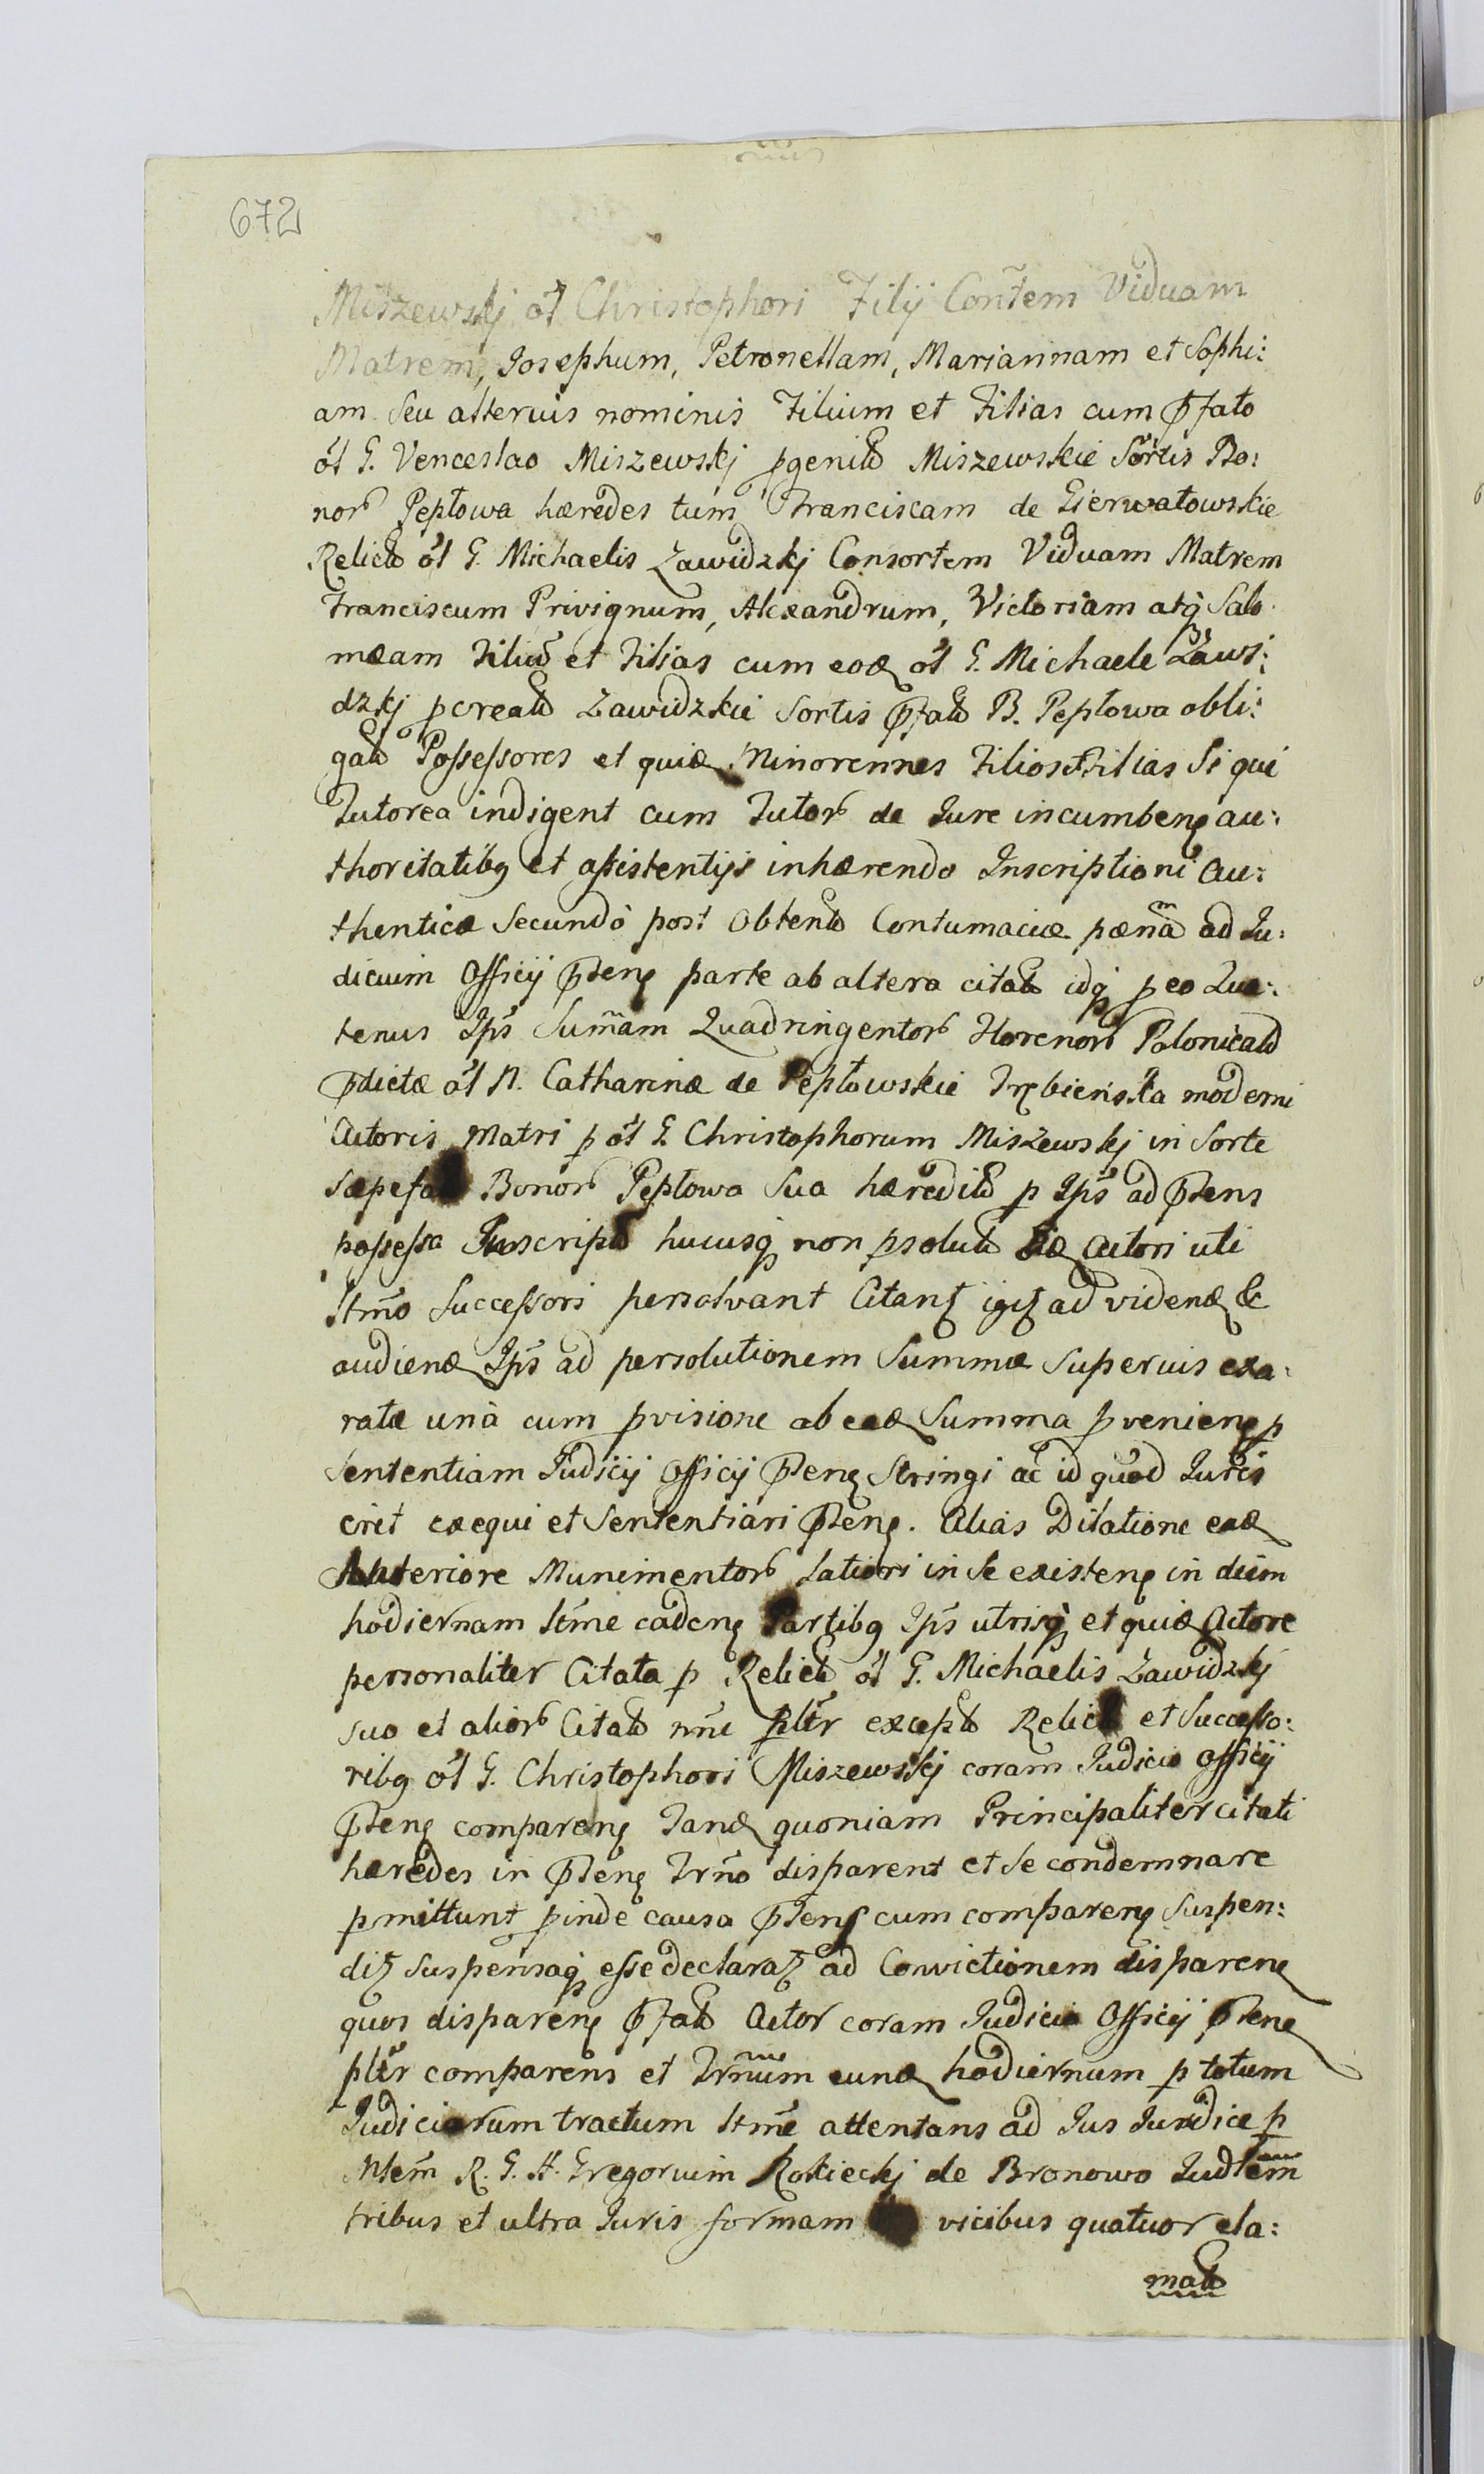 672
Miszewskj ol Christophori Filij Contem Viduam
Matrem, Josephum, Petronellam, Mariannam et Sophi:
am seu alterius nominis Filium et Filias cum pfato
ol G. Venceslao Miszewskj pgenit Miszewskie Sortis Bo:
nor Peptowa hæredes tum Franciscam de Gierwatowskie
Relict ol G. Michaelis Zawidzkj Consortem Viduam Matrem
Franciscum Privignum, Alexandrum, Victoriam atq Salo
mæam Filiu et Filias cum eod ol G. Michaele Zawi:
dzkj pcreat Zawidzkie Sortis pfat B. Peptowa obli:
gat Possessores et quid Minorennes Filios Filias Si qui
Tutorea indigent cum Tutor de Jure incumben au:
thoritatibq et assistentijs inhærendo Inscriptioni Au:
thenticæ Secundò post Obtent Contumaciæ pænam ad Ju:
dicium Officij pten parte ab altera citat idq p eo Qua:
tenus Ips Sumam Quadringentor Florenor Polonicat
pdictæ ol N. Catharinæ de Peptowskie Trębieńska moderni
Actoris Matri p ol G Christophorum Miszewskj in Sorte
sæpefat Bonor Peptowa Sua hæredit p Ips ad ptens
possessa Inscript hucusq non psolut Actori uti
ltmo Successori persolvant Citant igit ad videnđ &
audienđ Ips ad persolutionem Summæ Superius exa:
ratæ unà cum pvisione ab eađ Summa pvenien p
Sententiam Judicij Officij pten Stringi ac id quod Juris
erit exequi et Sententiari pten. Alias Dilatione eađ
Anteriore Munimentor latiori in se existen in diem
hodiernam ltme caden Partibq Ips utrisq et quid Actore
personaliter Citata p Relict ol G. Michaelis Zawidzkj
suo et alior Citat nne pltr except Relict et Successo:
ribq ol G. Christophori Miszewskj coram Judicio Officij
pten comparen Tand quoniam Principaliter citati
hæredes in pten Trno disparent et se condemnare
pmittunt pinde causa pten cum comparen Suspen:
dit Suspensaq esse declarat ad Convictionem disparen
quos disparen pfat Actor coram Judicio Officij pten
pltr comparens et Trnum eund hodiernum p totum
Judiciorum tractum ltme attentans ad Jus Juridice p
Mlem R. G. H. Gregorium Rokieckj de Bronowo Judlem
tribus et ultra Juris formam vicibus quatuor cla:
mat